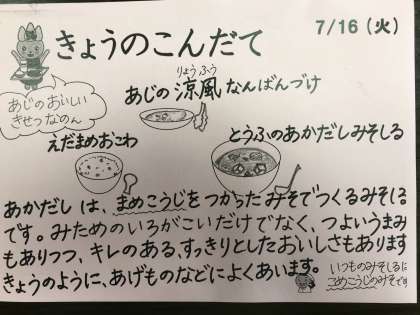 きょうのこんだて
7/16（火）
あじのおいしい
きせつなのん
りょうふう
あじの涼風なんばんづけ
えだまめおこわ
とうふのあかだしみそしる
あかだしは、まめこうじをつかったみそでつくるみそしる
です。みためのいろがこいだけでなく、つよいうまみ
もありつつ、キレのある、すっきりとしたおいしさもあります
きょうのように、あげものなどによくあいます。
いつものみそしるは
こめこうじのみそです